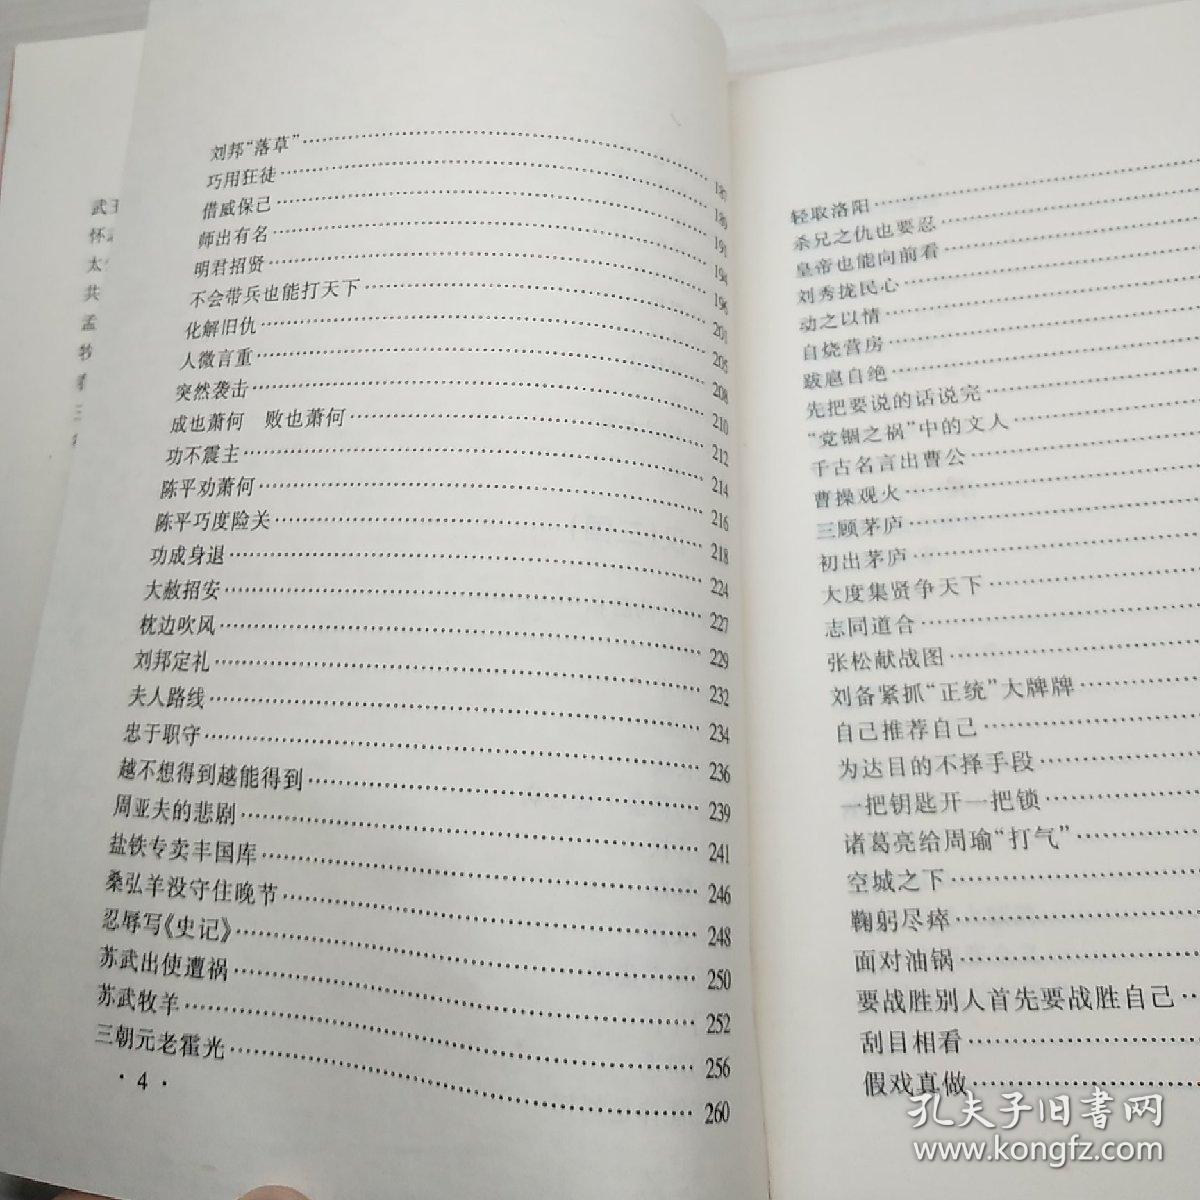 武
怀
太
共
孟
牧
三
刘邦“落草”……187
巧用狂徒……189
借威保己……191
师出有名……194
明君招贤……196
不会带兵也能打天下……201
化解旧仇……205
人微言重……208
突然袭击……210
成也萧何　败也萧何……212
功不震主……214
陈平劝萧何……216
陈平巧度险关……218
功成身退……224
大赦招安……227
枕边吹风……229
刘邦定礼……232
夫人路线……234
忠于职守……236
越不想得到越能得到……239
周亚夫的悲剧……241
盐铁专卖丰国库……246
桑弘羊没守住晚节……248
忍辱写《史记》……250
苏武出使遭祸……252
苏武牧羊……256
三朝元老霍光……260
·4·
轻取洛阳……
杀兄之仇也要忍……
皇帝也能向前看……
刘秀拢民心……
动之以情……
自烧营房……
跋扈自绝……
先把要说的话说完……
“党锢之祸”中的文人……
千古名言出曹公……
曹操观火……
三顾茅庐……
初出茅庐……
大度集贤争天下……
志同道合……
张松献战图……
刘备紧抓“正统”大牌牌……
自己推荐自己……
为达目的不择手段……
一把钥匙开一把锁……
诸葛亮给周瑜“打气”……
空城之下……
鞠躬尽瘁……
面对油锅……
要战胜别人首先要战胜自己……
刮目相看……
假戏真做……
孔夫子旧书网
www.kongfz.com